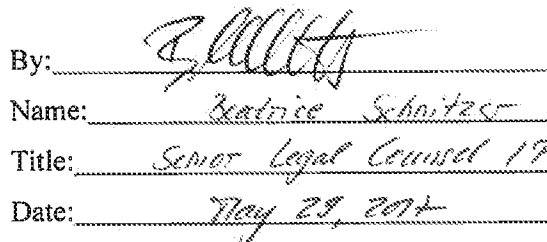 By:
Name: Beatrice Schnitzer
Title: Senior Legal Counsel IP
Date: May 29,